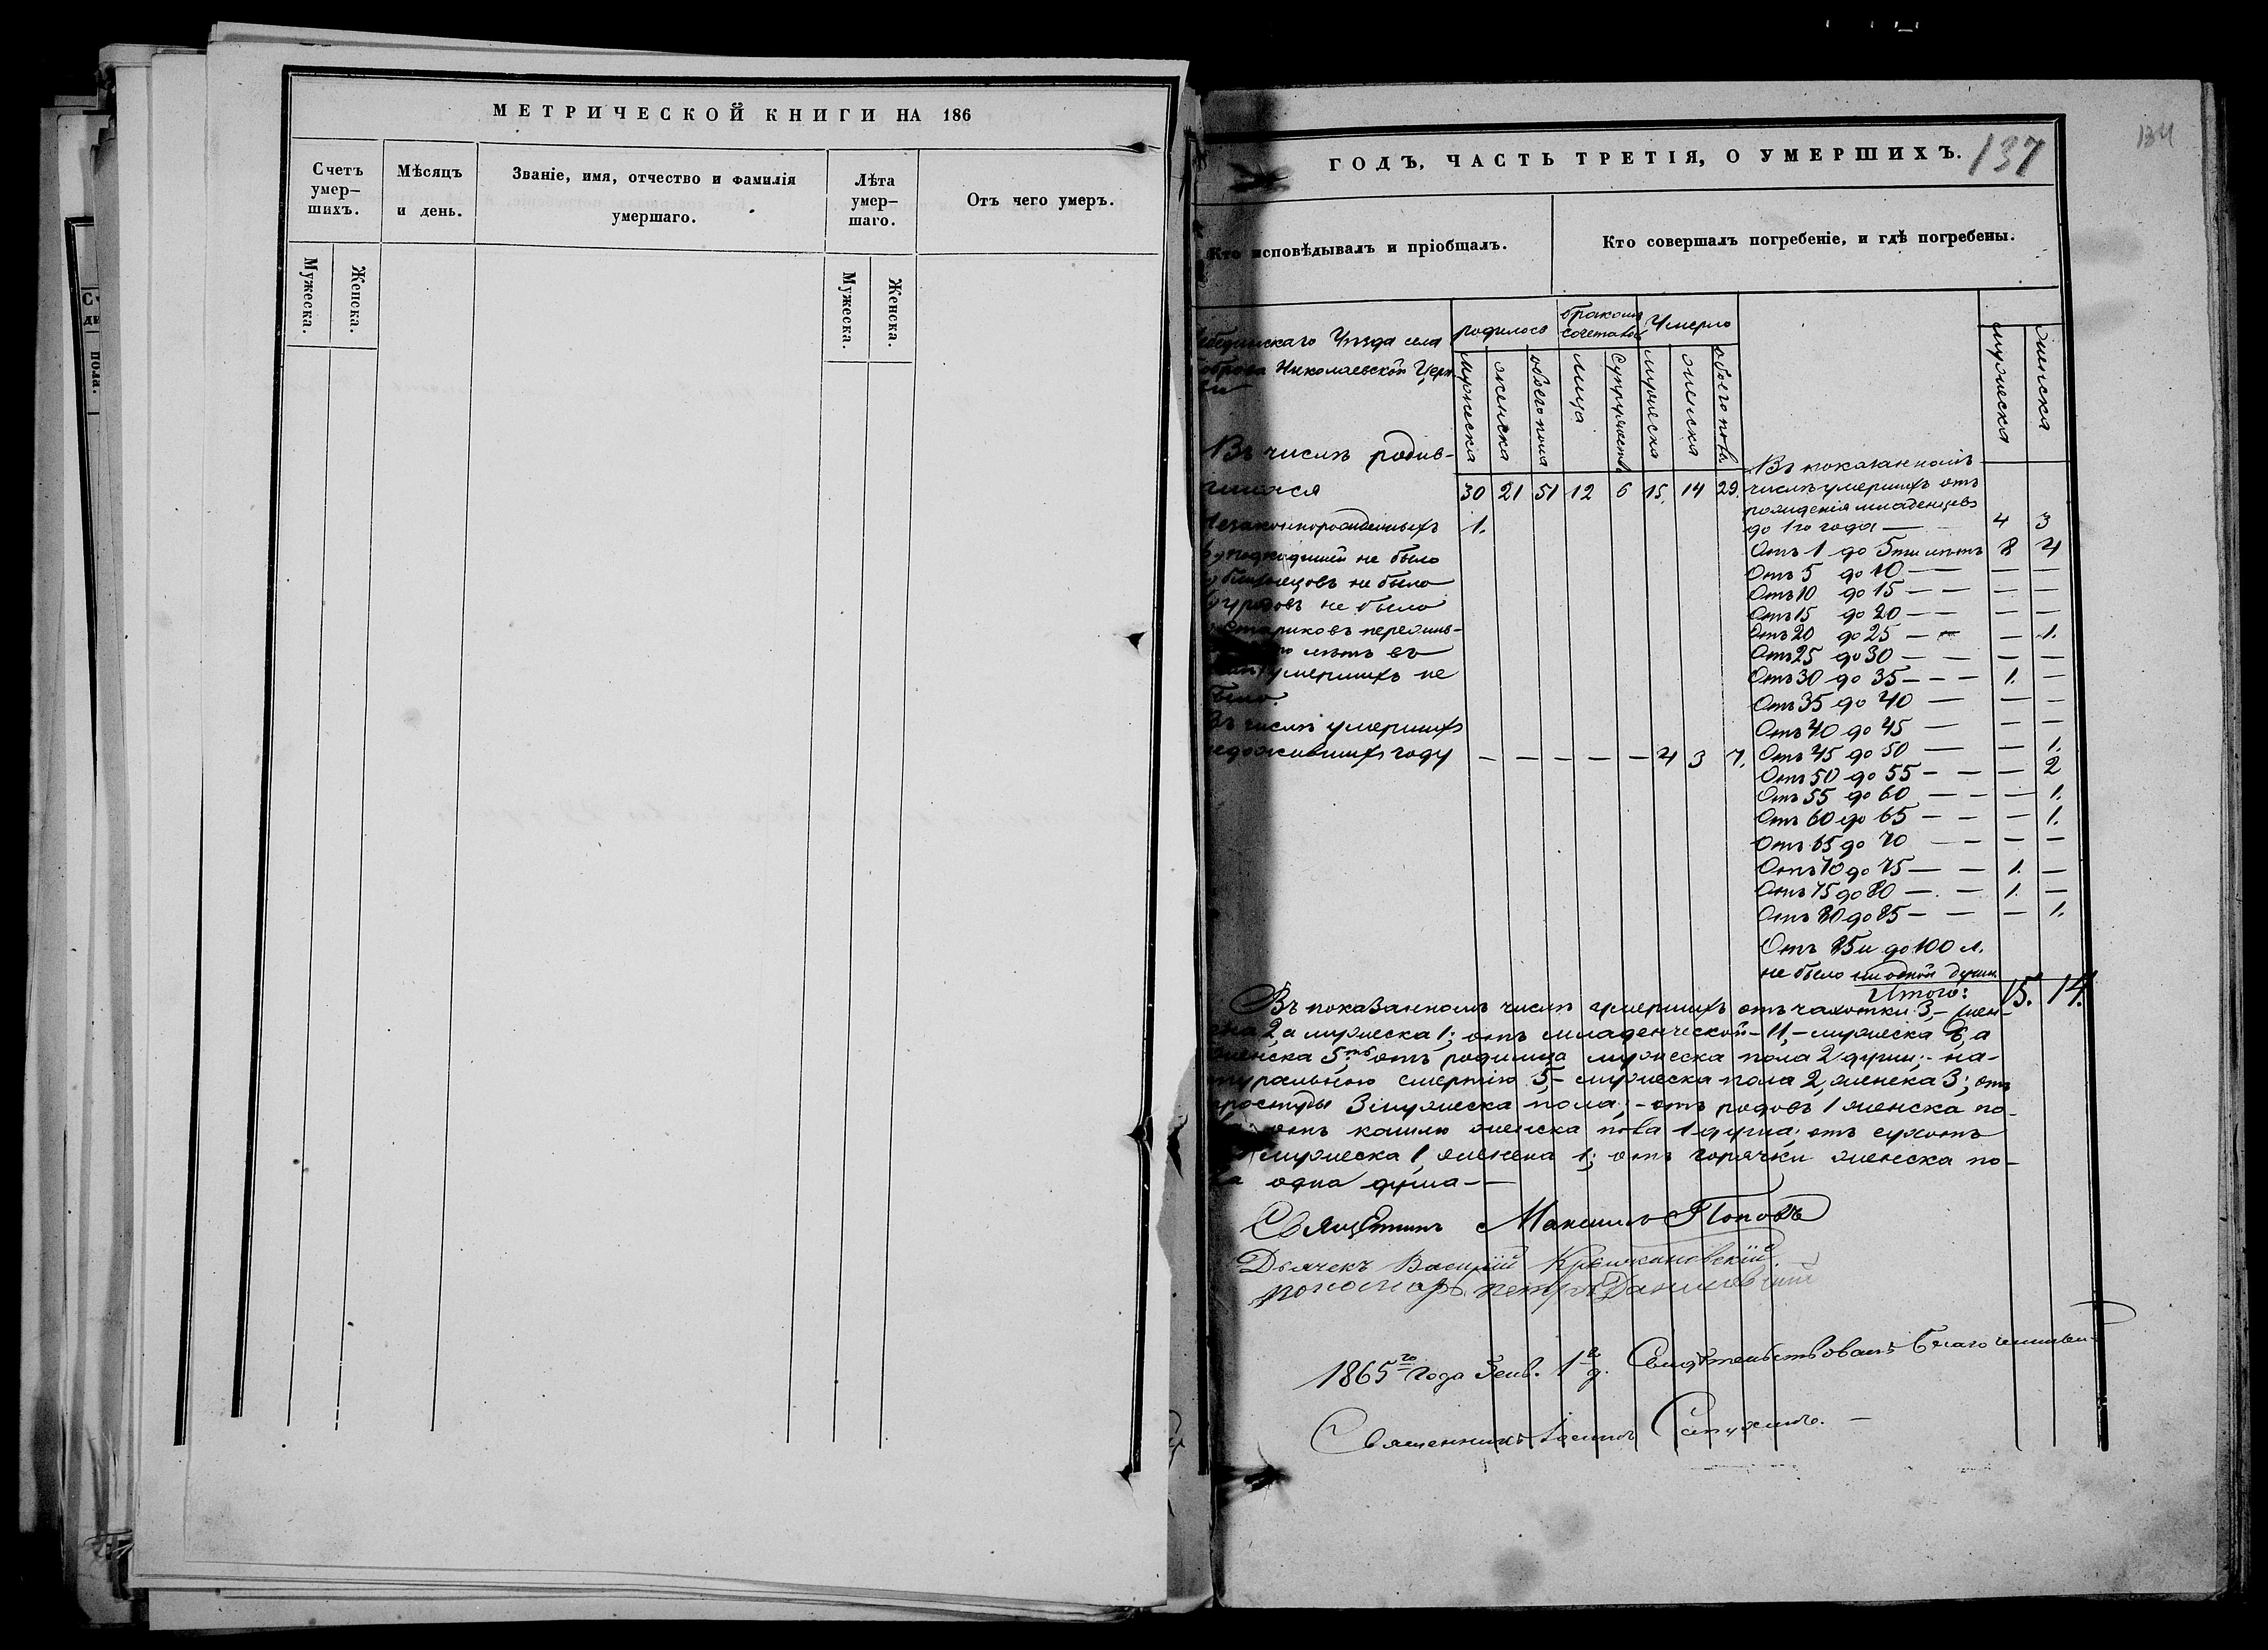 МЕТРИЧЕСКОЙ КНИГИ НА 186
Счетъ умер–шихъ.
Мѣсяцъ и день.
Званіе, имя, отчество и фамилія умершаго.
Лѣта умер–шаго.
Отъ чего умеръ.
Мужеска.
Женска.
Мужеска.
Женска.
ГОДЪ, ЧАСТЬ ТРЕТІЯ, О УМЕРШИХЪ.
137
134
Кто исповѣдывалъ и пріобщалъ.
Кто совершалъ погребеніе, и гдѣ погребены.
Уѣзда села
Николаевской Церк
ви
родилось
бракомъ сочетанов
Умерло
мужеска
женска
обоего пола
лица
супружествъ
мужеска
женска
обоего пола
мужеска
женска
Въ числѣ родив-
шихся 30 21 51 12 6 15. 14 29.
Незаконнорожденныхъ 1.
не было
не было
уродовъ не было
стариковъ пережив-
лѣтъ въ
умершихъ не
было.
Въ числѣ умершихъ
недожившихъ году — — — — — 4 3 7.
Въ показанномъ
числѣ умершихъ отъ
рожденія младенцевъ
до 1го года — 4 3
Отъ 1 до 5ти лѣтъ 8 4
Отъ 5 до 10 — — — —
Отъ 10 до 15 — — — —
Отъ 15 до 20 — — — —
Отъ 20 до 25 — — — 1.
Отъ 25 до 30 — — — —
Отъ 30 до 35 — — — 1. —
Отъ 35 до 40 — — —
Отъ 40 до 45 — — —
Отъ 45 до 50 — — 1.
Отъ 50 до 55 — — — 2
Отъ 55 до 60 — — — 1.
Отъ 60 до 65 — — — 1.
Отъ 65 до 70 — — — —
Отъ 70 до 75 — — 1. —
Отъ 75 до 80 — — 1. —
Отъ 80 до 85 — — — 1.
Отъ 85и до 100 л.
не было ни одной души
Итого: 15. 14.
Въ показанномъ числѣ умершихъ отъ чахотки 3, – жен-
ска 2, а мужеска 1; отъ младенческой – 11, – мужеска 6, а
женска 5; отъ родимца мужеска пола 2 души; – на-
туральною смертію 5, – мужеска пола 2, женска 3; отъ
простуды 3 мужеска пола; – отъ родовъ 1 женска по-
отъ кашлю женска пола 1 душа; отъ сухотъ
мужеска 1, женска 1; отъ горячки женска по-
ла одна душа —
Священникъ Максимъ Поповъ
Дьячекъ Василій
Пономарь Петръ Даниловскій
1865го года Генв. 1 д. Свидѣтельствовалъ Благочинный
Священникъ